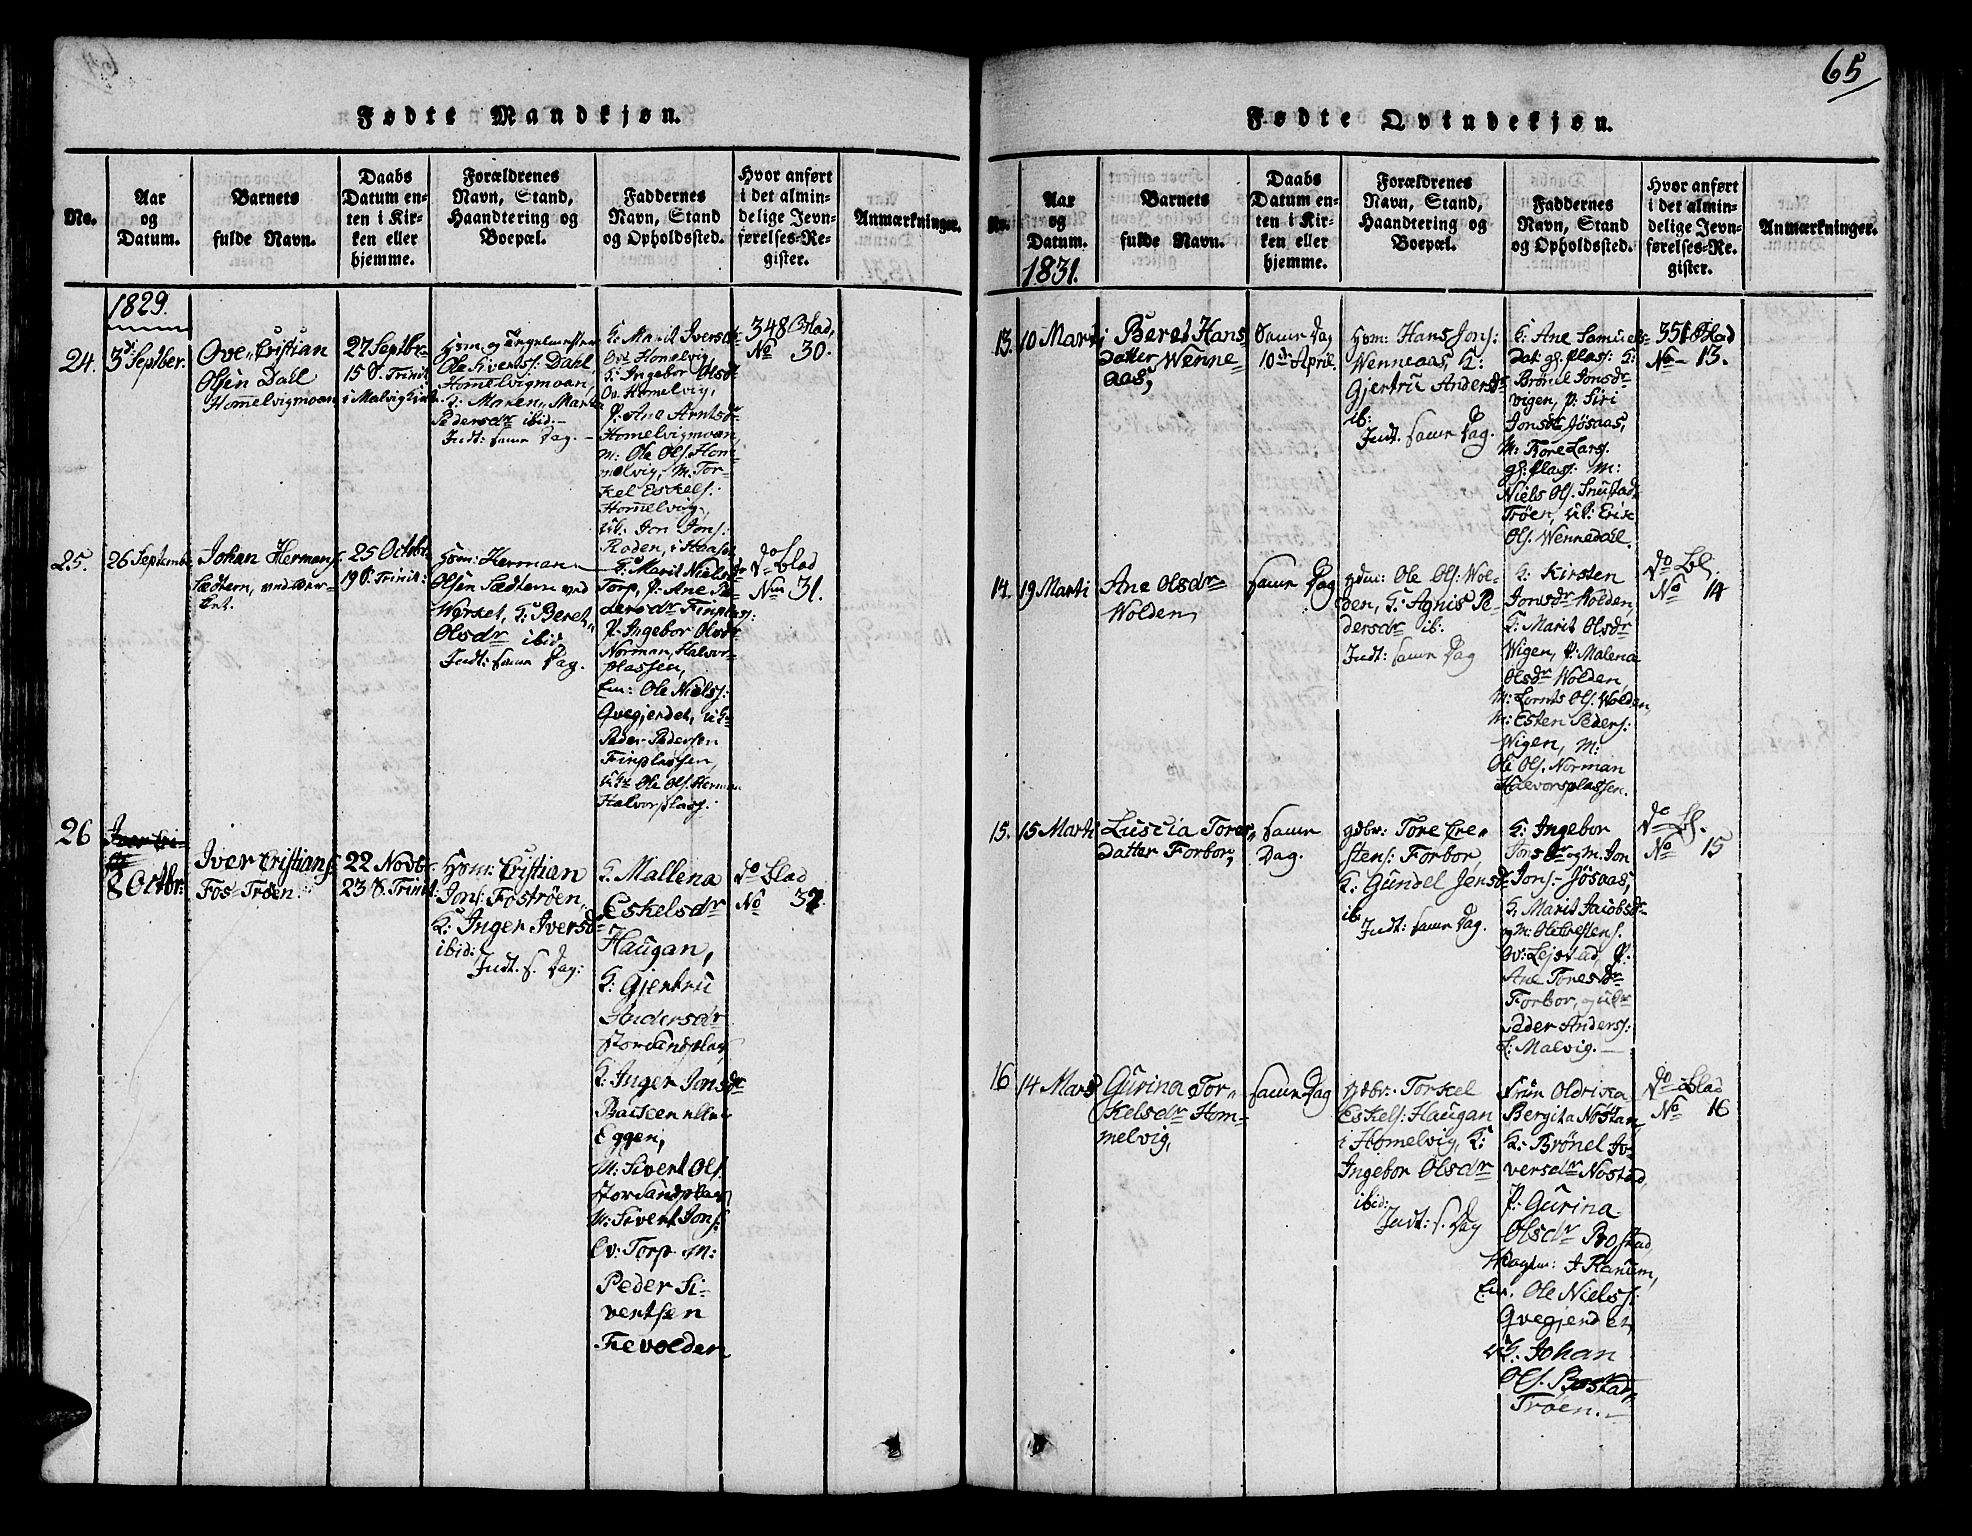 65
Fødte Mandkjøn.
No.
Aar
og
Datum.
Barnets
fulde Navn.
Daabs
Datum en-
ten i Kir-
ken eller
hjemme.
Forældrenes
Navn, Stand,
Haandtering og
Boepæl.
Faddernes
Navn, Stand
og Opholdssted.
Hvor anført
i det almin-
delige Jevn-
førelses-Re-
gister.
Anmærkninger.
1829.
24.
3di Septber.
Ove Cristian
Olsen Dahl
Homelvigmoan
27 Septbr.
15 S. Trinit.
i Malvig
Ole Sivertss: Dahl,
Homelvigmoan,
K: Maren Marta
Pedersdr ibid:
Indt: samme Dag.
K: Marit Iversdr
Ov: Homelvig,
K: Ingebor Olsdr
Ov: Homelvig,
P: Ane Arntsdr
Homelvigmoan,
M: Ole Ols. Hom-
melvig, M. Tor-
kel Eskels:
Homelvig,
Uk: Jon Jons:
348 Blad,
No 30.
25.
26 Septembr
Johan Hermans:
Sædtern,
25 Octbr.
19 S. Trinit:
Hsm: Herman
Olsen Sædtern ved
K: Beret
Olsdr ibid.
Indt: samme Dag.
K: Marit Nielsdr
Torp, P: Ane Pe-
dersdr Finplas:
P: Ingebor Olsdr
Norman, Halvor-
plassen,
Em: Ole Niels:
Qvegjerdet,
Peder Pedersen
Finplassen,
Ole Ols. Herman
Halvorsplass:
do Blad
No 31.
26
8 Octbr:
Iver Cristians:
Fos-Trøen.
22 Novbr.
23 S. Trinit:
Hsm: Cristian
Jons: Fostrøen,
K: Inger Iversdr
ibid:
Indt. s. Dag:
K: Mallena
Eskelsdr
Haugan,
K: Gjertru
Andersdr
Storsandplas
K: Inger Jonsdr
Eggen,
M: Sivert Ols.
Storsandplas
M: Sivert Jons:
Ov: Torp M:
Peder Si-
vertsen
Tievolden
do Blad
No 32.
Fødte Qvindekjøn.
No.
Aar
og
Datum.
1831.
Barnets
fulde Navn.
Daabs
Datum en-
ten i Kir-
ken eller
hjemme.
Forældrenes
Navn, Stand,
Haandtering og
Boepæl.
Faddernes
Navn, Stand
og Opholdssted.
Hvor anført
i det almin-
delige Jevn-
førelses-Re-
gister.
Anmærkninger.
13.
10 Marti
Beret Hans
datter Wenne-
aas,
Samme Dag
10de April.
Hsm: Hans Jons:
Wenneaas, K:
Gjertru Andersdr
ib:
Indt. samme Dag.
K: Ane Samuels-
K:
Brönel Jonsdr
vigen, P: Siri
Jonsdr Jøsaas,
M: Tore Lars.
M:
Niels Ols. Snustad
Trøen, Uk: Erik
Ols. Wennedall.
351 Blad
No 13.
14.
19 Marti
Ane Olsdr
Wolden,
samme Dag
gdm: Ole Ols: Wol-
den, K: Agnis Pe-
dersdr ib:
Indt: samme Dag
K: Kirsten
Jonsdr Wolden,
K: Marit Olsdr
Wigen, P: Malena
Olsdr Wolden,
M: Lornts Ols. Wolden,
M: Esten Peders:
Wigen, M:
Ole Ols. Norman
Halvorsplassen.
do Bl.
No 14
15.
15 Marti
Luscia Tores
datter Forbor,
samme
Dag.
gdbr: Tore Cre-
stens: Forbor,
K: Gundel Jensdr
ib.
Indt: samme Dag.
K: Ingebor
Jonsdr og M. Jon
Jons: Jøsaas,
K. Marit Jacobsdr
og M: Ole Crestens.
Ov: Lejstad, P:
Ane Toresdr
Forbor, og
Peder Anders:
Malvig.
do Bl.
No 15
16
14 Mars
Gurina Tor-
kelsdr Hom-
melvig,
samme Dag
gdbr: Torkel
Eskels: Haugan
i Homelvig, K:
Ingebor Olsdr
ibid:
Indt: s. Dag
Frun Oldrika
Bergita Nøstan,
K: Brönel I-
versdr Nostad,
P: Gurina
Olsdr Bostad,
Ranum,
Em. Ole Niels:
Qvegjerdet,
Johan
Ols. Bostad
Trøen.
do Blad
No 16